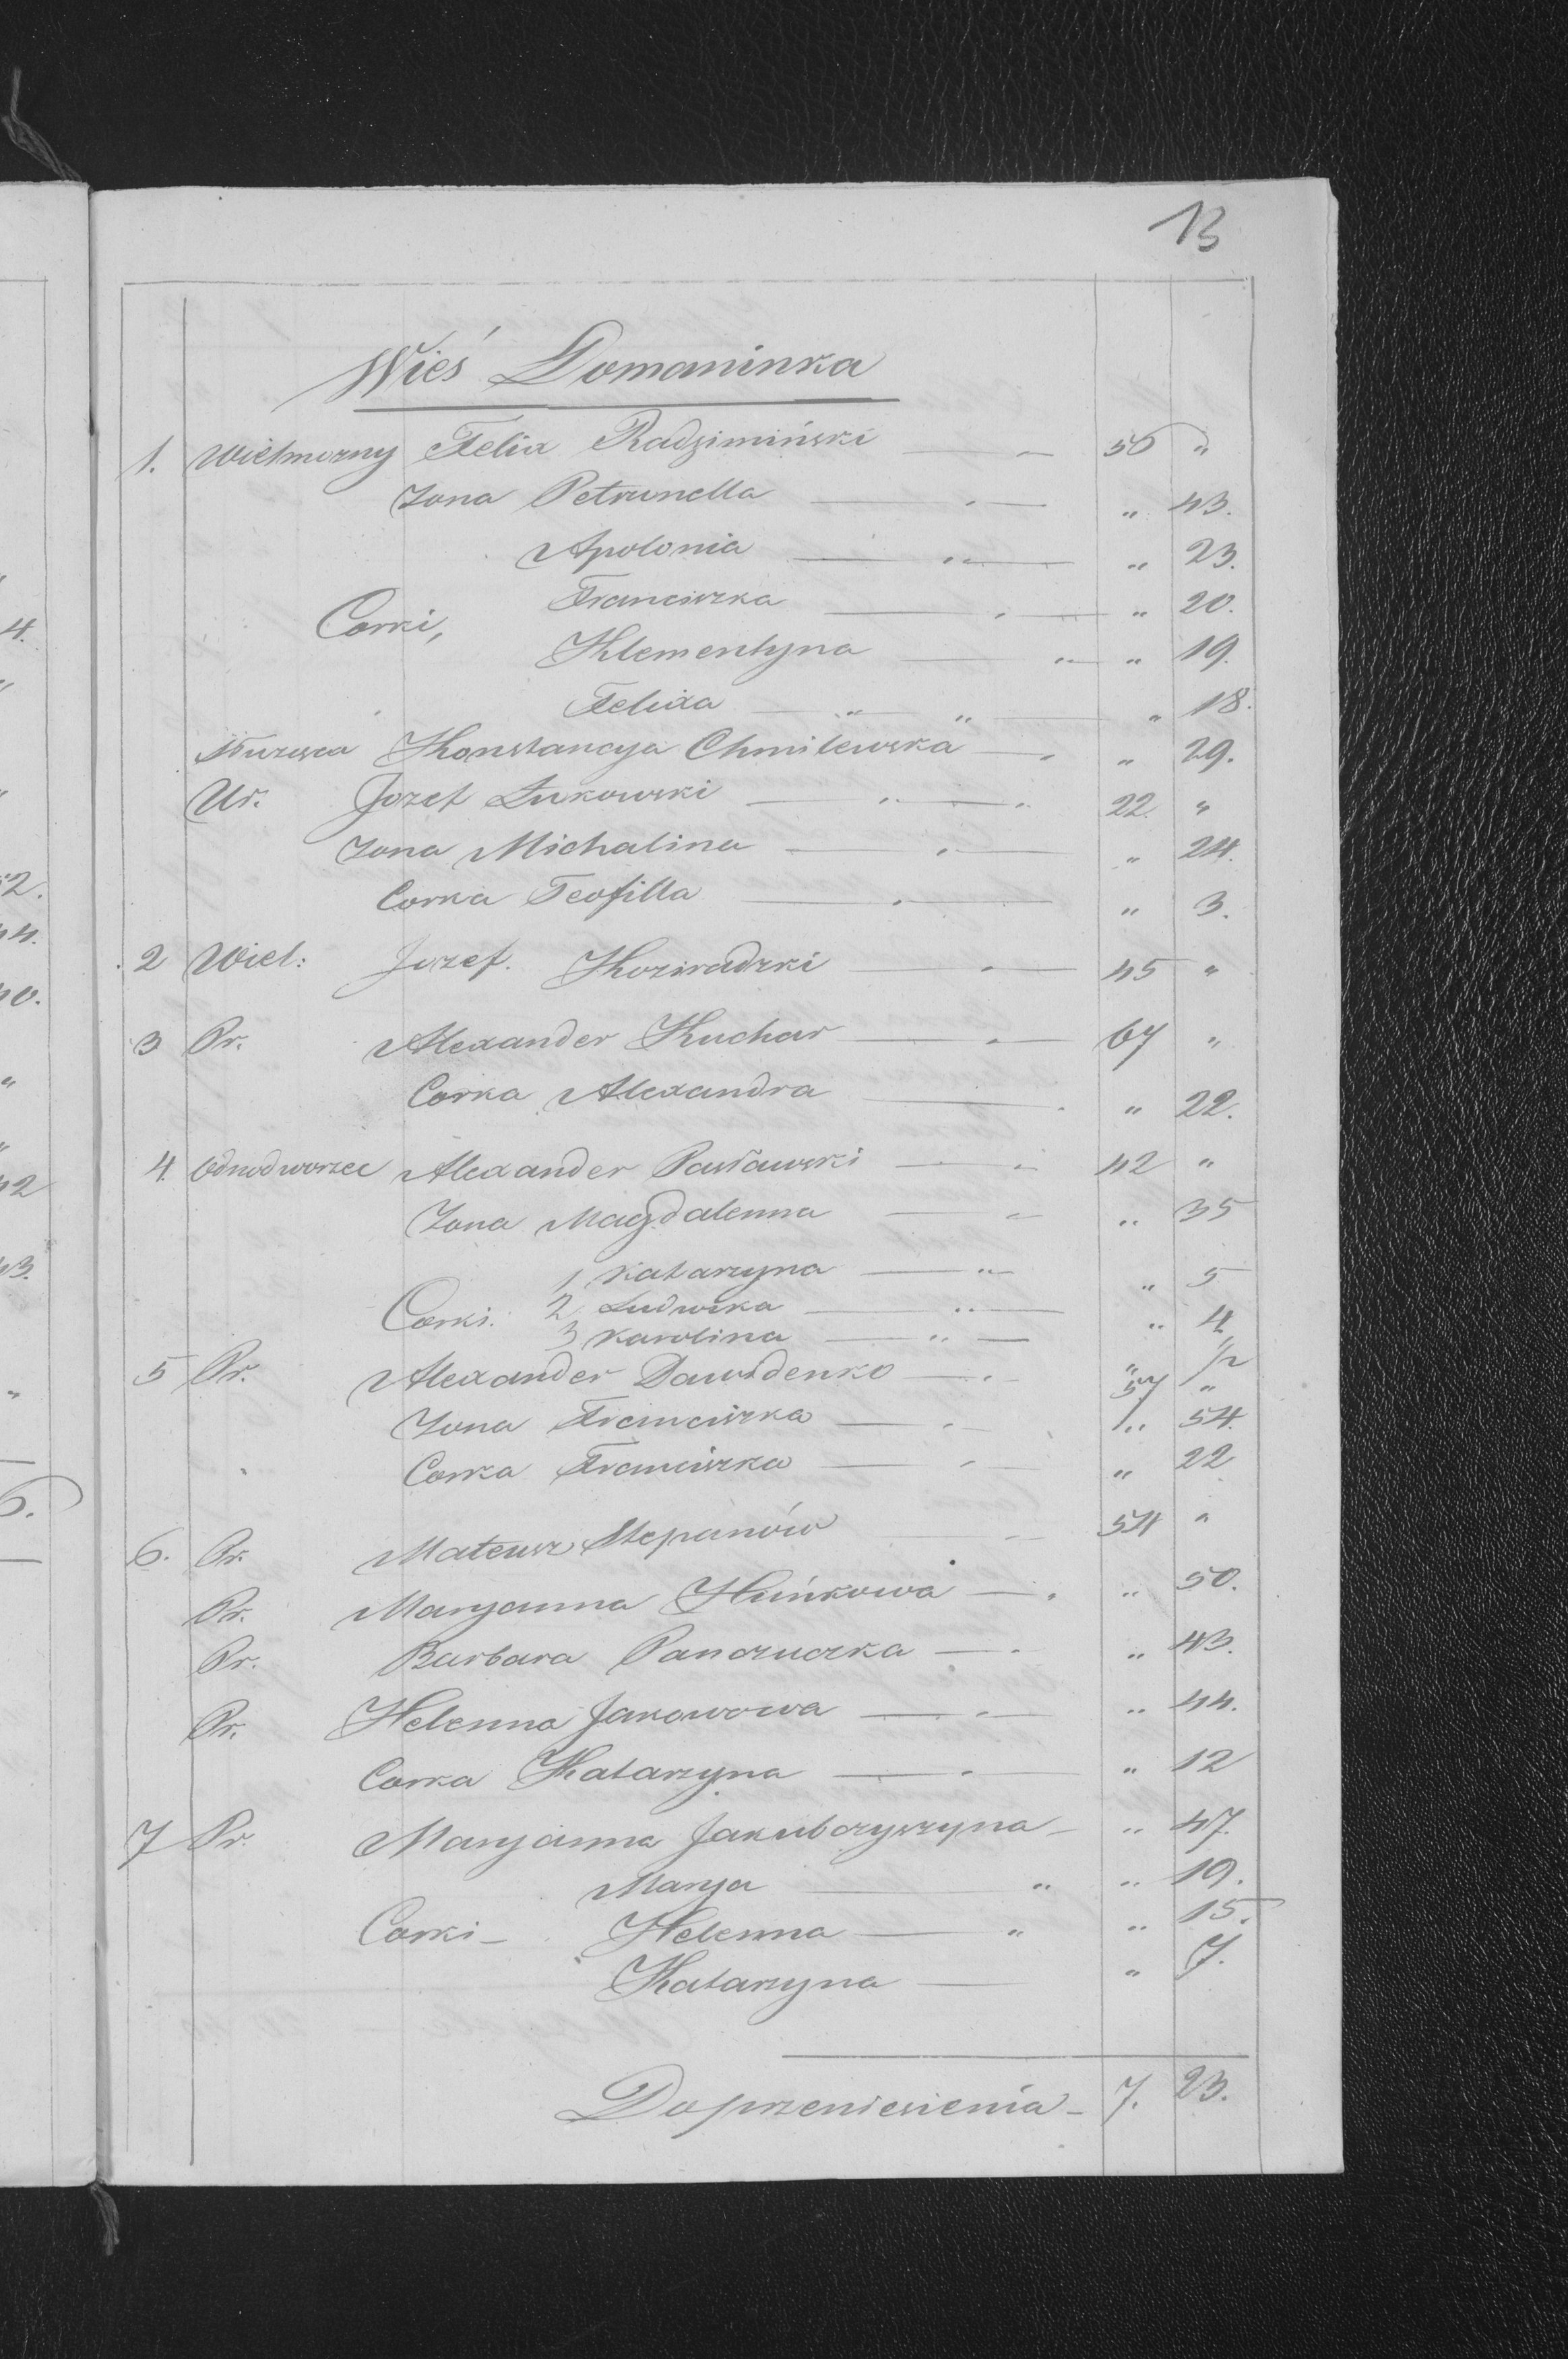 13
Wieś Domaninka
1. Wielmorzny Felix Radzimiński — 50 "
Zona Petrunella — " 43.
Apolonia — " 23.
Franciszka — " 20.
Corki,
Klementyna — " 19.
Felixa — " 18.
Konstancya Chmilewska — " 29.
Ur. Jozef Łukowski — 22. "
Zona Michalina — " 24.
Corka Teofilla — " 3.
2 Wiel: Jozef. Koziradzki — 45 "
3 Pr. Alexander Kuchar — 67 "
Corka Alexandra — " 22.
4. Odnodworzec Alexander Pasławski — 42 "
Zona Magdalenna — " 35
1 Katarzyna — " 5
Corki. 2 Ludwika — " 4
3 Karolina — " 1/2
5 Pr. Alexander Dawidenko — 57 "
Zona Franciszka — " 54.
Corka Franciszka — " 22
6. Pr. Mateusz Stepanów — 54 "
Pr. Maryanna Huńkowa — " 50.
Pr. Barbara Panczuczka — " 43.
Pr. Helenna Jakowowa — " 44.
Corka Katarzyna — " 12
7 Pr. Maryanna Jakubczyszyna — " 47.
Marya — " 19.
Corki — Helenna — " 15.
Katarzyna — " 7.
Do przeniesienia — 7. 23.
4.
52.
44.
40.
42
43.
6.